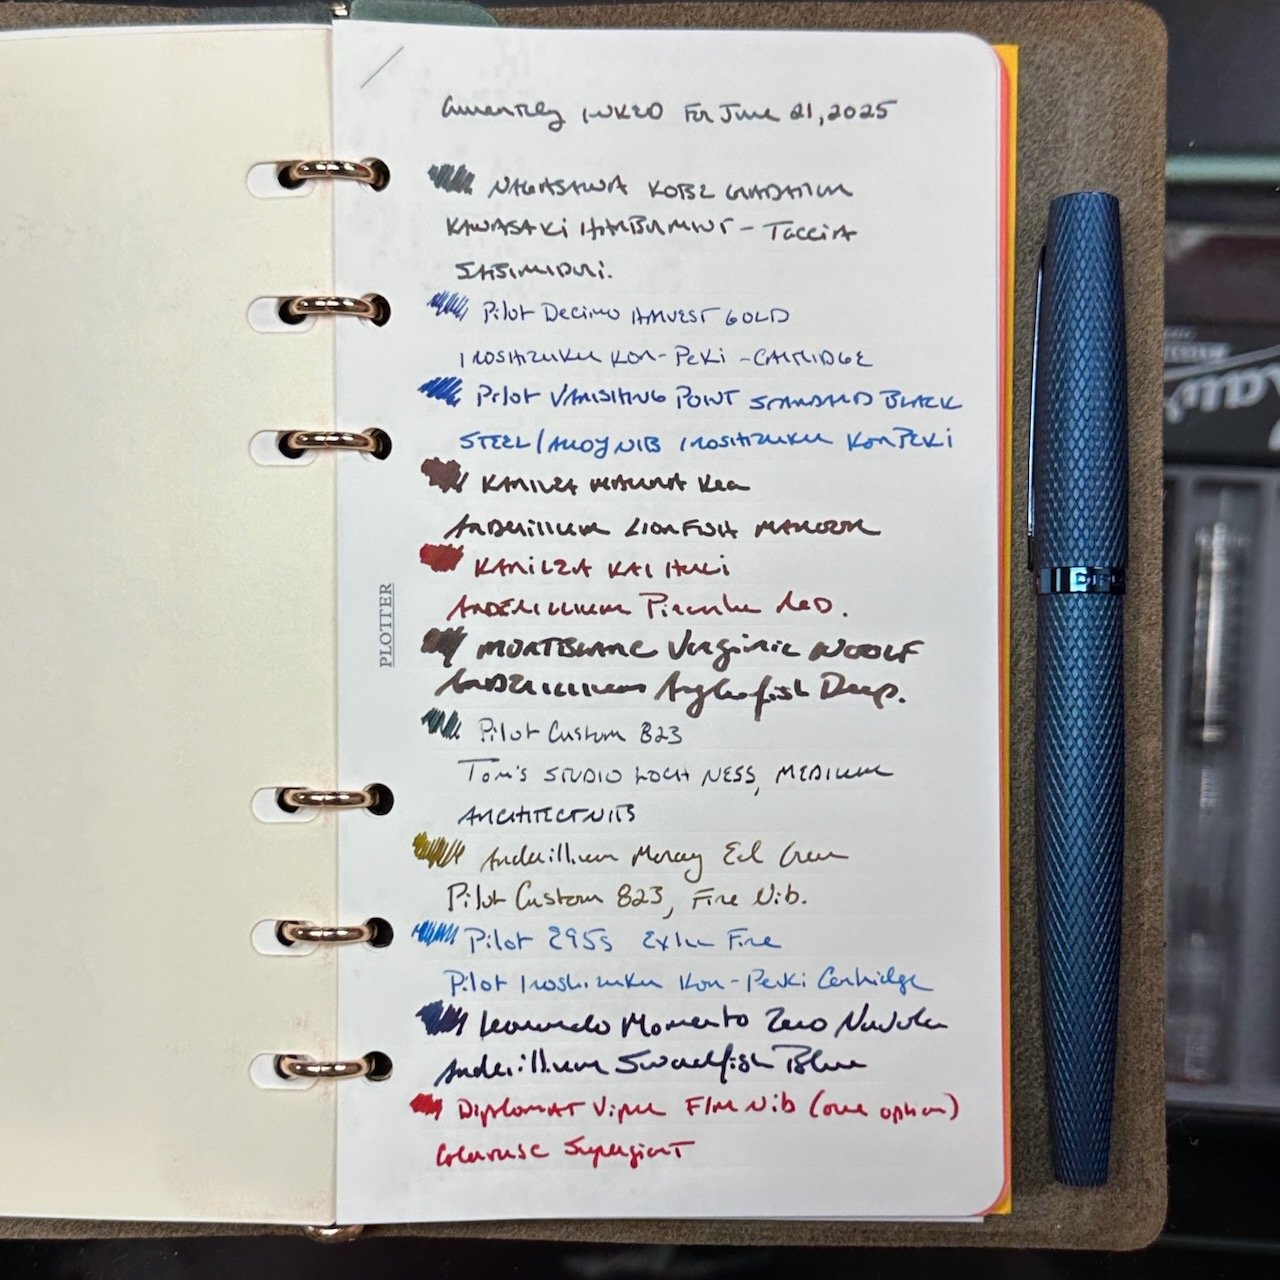 Currently INKED For June 21, 2025
NAGASAWA KOBE
KAWASAKI - TACCIA
Pilot Decimo HARVEST GOLD
IROSHIZUKU KON-PEKI - CARTRIDGE
Pilot VANISHING POINT STANDARD BLACK
STEEL/ALLOY NIB IROSHIZUKU KON PEKI
KANILEA MAUNA Kea
ANDERILLIUM LIONFISH MAROON
KANILEA KAI
ANDERILLIUM Piranha Red.
MONTBLANC Virginia WOOLF
ANDERILLIUM Anglerfish Deep.
Pilot Custom 823
Tom's STUDIO LOCH NESS, MEDIUM
ARCHITECT NIB
Anderillium Moray Eel Green
Pilot Custom 823, Fine Nib.
Pilot E95s Extra Fine
Pilot Iroshizuku Kon-Peki Cartridge
Leonardo Momento Zero
Anderillium Swordfish Blue
Diplomat Viper Fine Nib (one option)
Colorverse Supergiant
PLOTTER